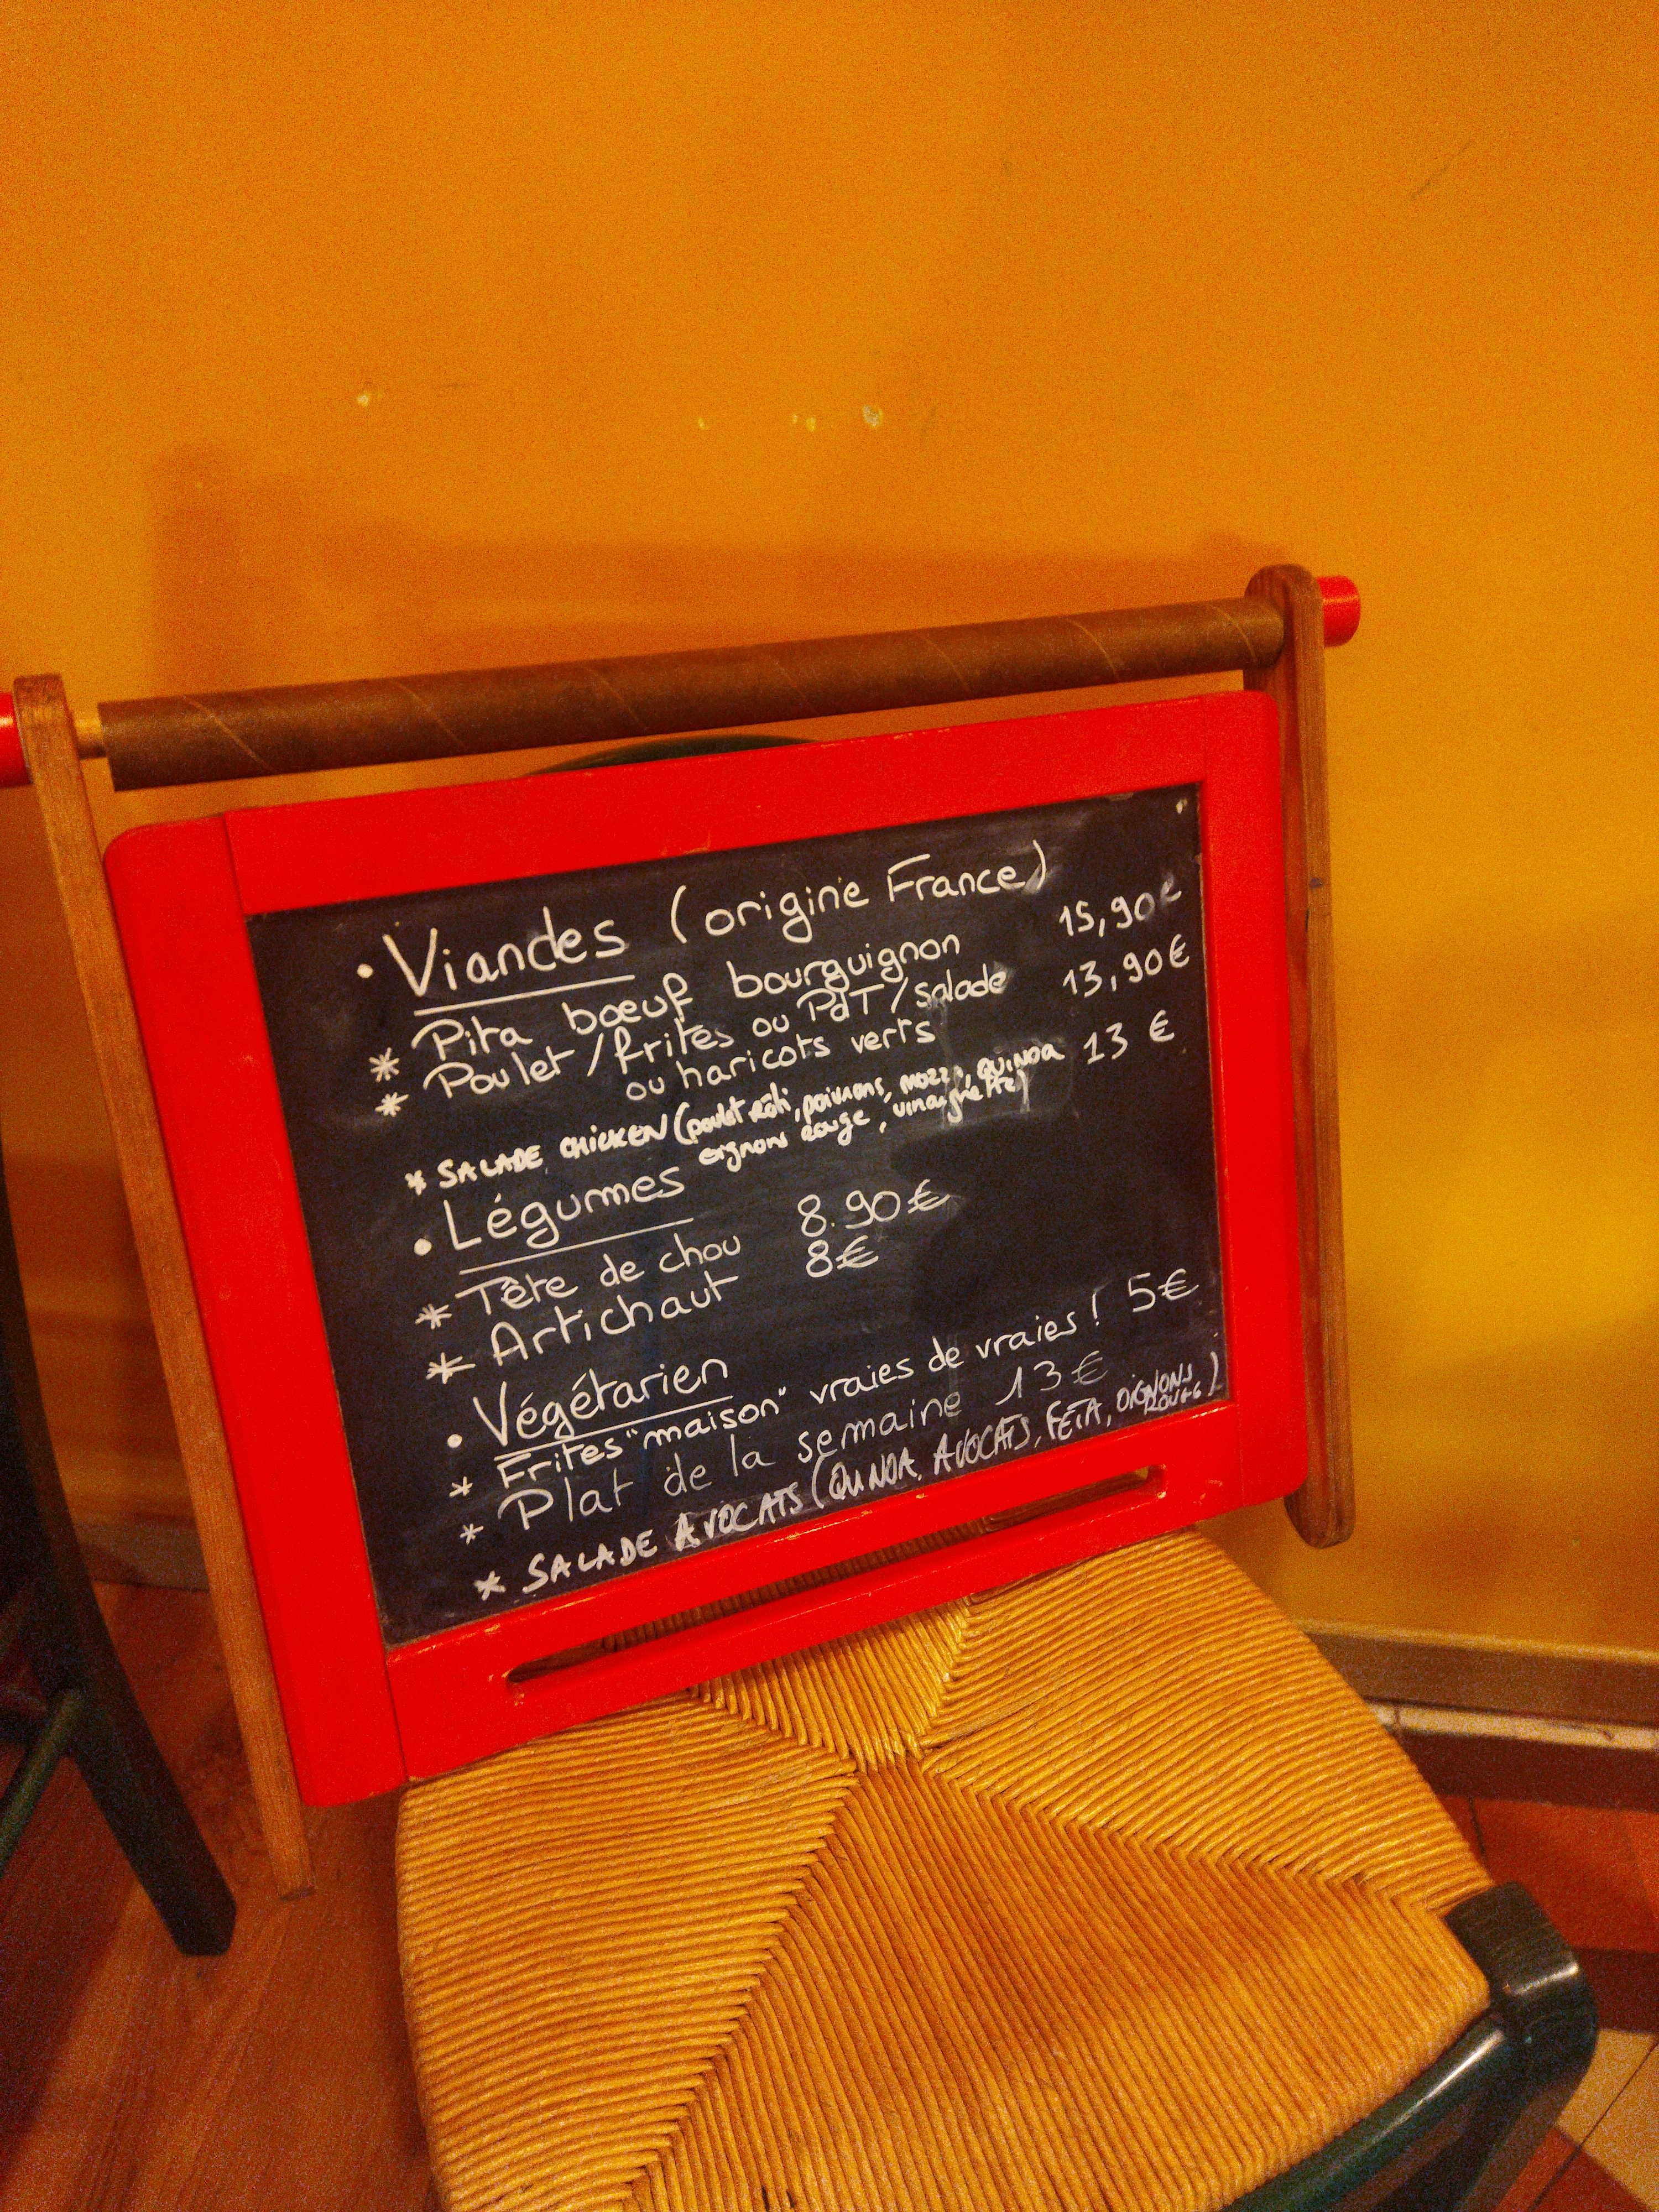 • Viandes (origine France)
* Pita bœuf bourguignon 15,90€
* Poulet/frites ou PdT/salade 13,90€
ou haricots verts
* SALADE CHICKEN (poulet rôti, poivrons, mozza, QUINOA 13 €
oignons rouge, vinaigrette)
• Légumes
* Tête de chou 8.90€
* Artichaut 8€
• Végétarien
* Frites "maison" vraies de vraies ! 5€
* Plat de la semaine 13€
* SALADE AVOCATS (QUINOA, AVOCATS, FETA, OIGNONS
ROUGE)